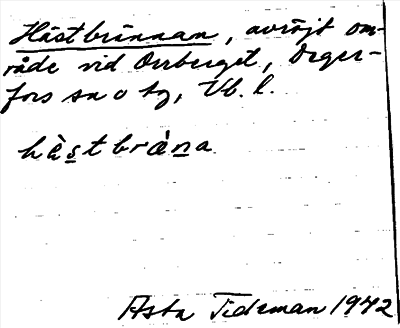 Hästbrännan, avröjt om-
råde vid Orrberget, Degers-
fors sn o by, Vb. l.
hàstbrǽna
Asta Tideman 1942